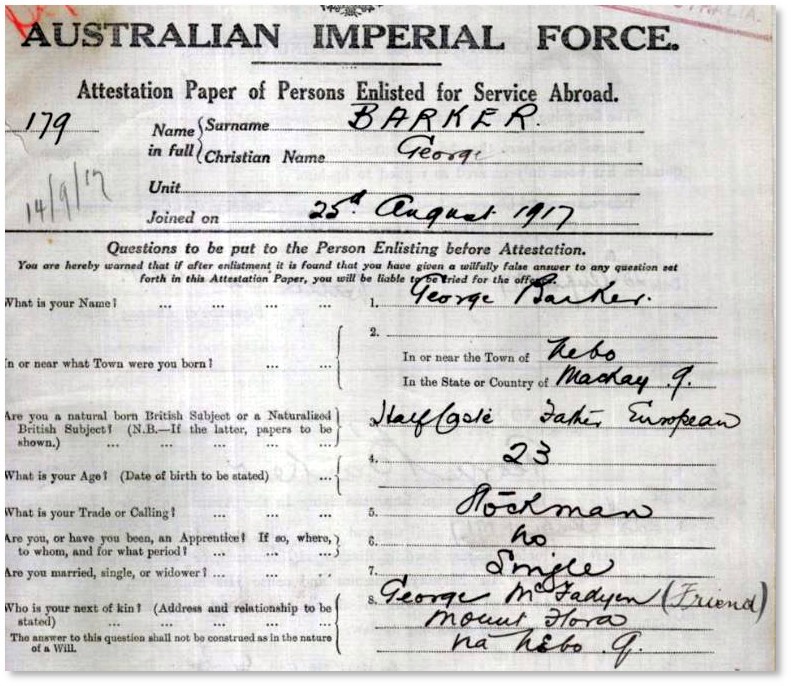 AUSTRALIAN IMPERIAL FORCE.
Attestation Paper of Persons Enlisted for Service Abroad.
179
Name in full
Surname BARKER.
Christian Name George
14/9/17
Unit
Joined on 25th August 1917
Questions to be put to the Person Enlisting before Attestation.
You are hereby warned that if after enlistment it is found that you have given a wilfully false answer to any question set
forth in this Attestation Paper, you will be liable to be tried for the offence.
What is your Name? ... ... ... ... 1. George Barker.
2.
In or near what Town were you born? ... ... In or near the Town of Nebo
In the State or Country of Mackay Q.
Are you a natural born British Subject or a Naturalized
British Subject? (N.B.—If the latter, papers to be
shown.) ... ... ... ... ...
3. Half Caste Father European
What is your Age? (Date of birth to be stated) ... 4. 23
What is your Trade or Calling? ... ... ... 5. Stockman
Are you, or have you been, an Apprentice? If so, where,
to whom, and for what period? ... ... ...
6. No
Are you married, single, or widower? ... ... ... 7. Single
Who is your next of kin? (Address and relationship to be
stated) ... ... ... ... ...
The answer to this question shall not be construed as in the nature
of a Will.
8. George McFadyen (Friend)
Mount Flora
via Nebo. Q.